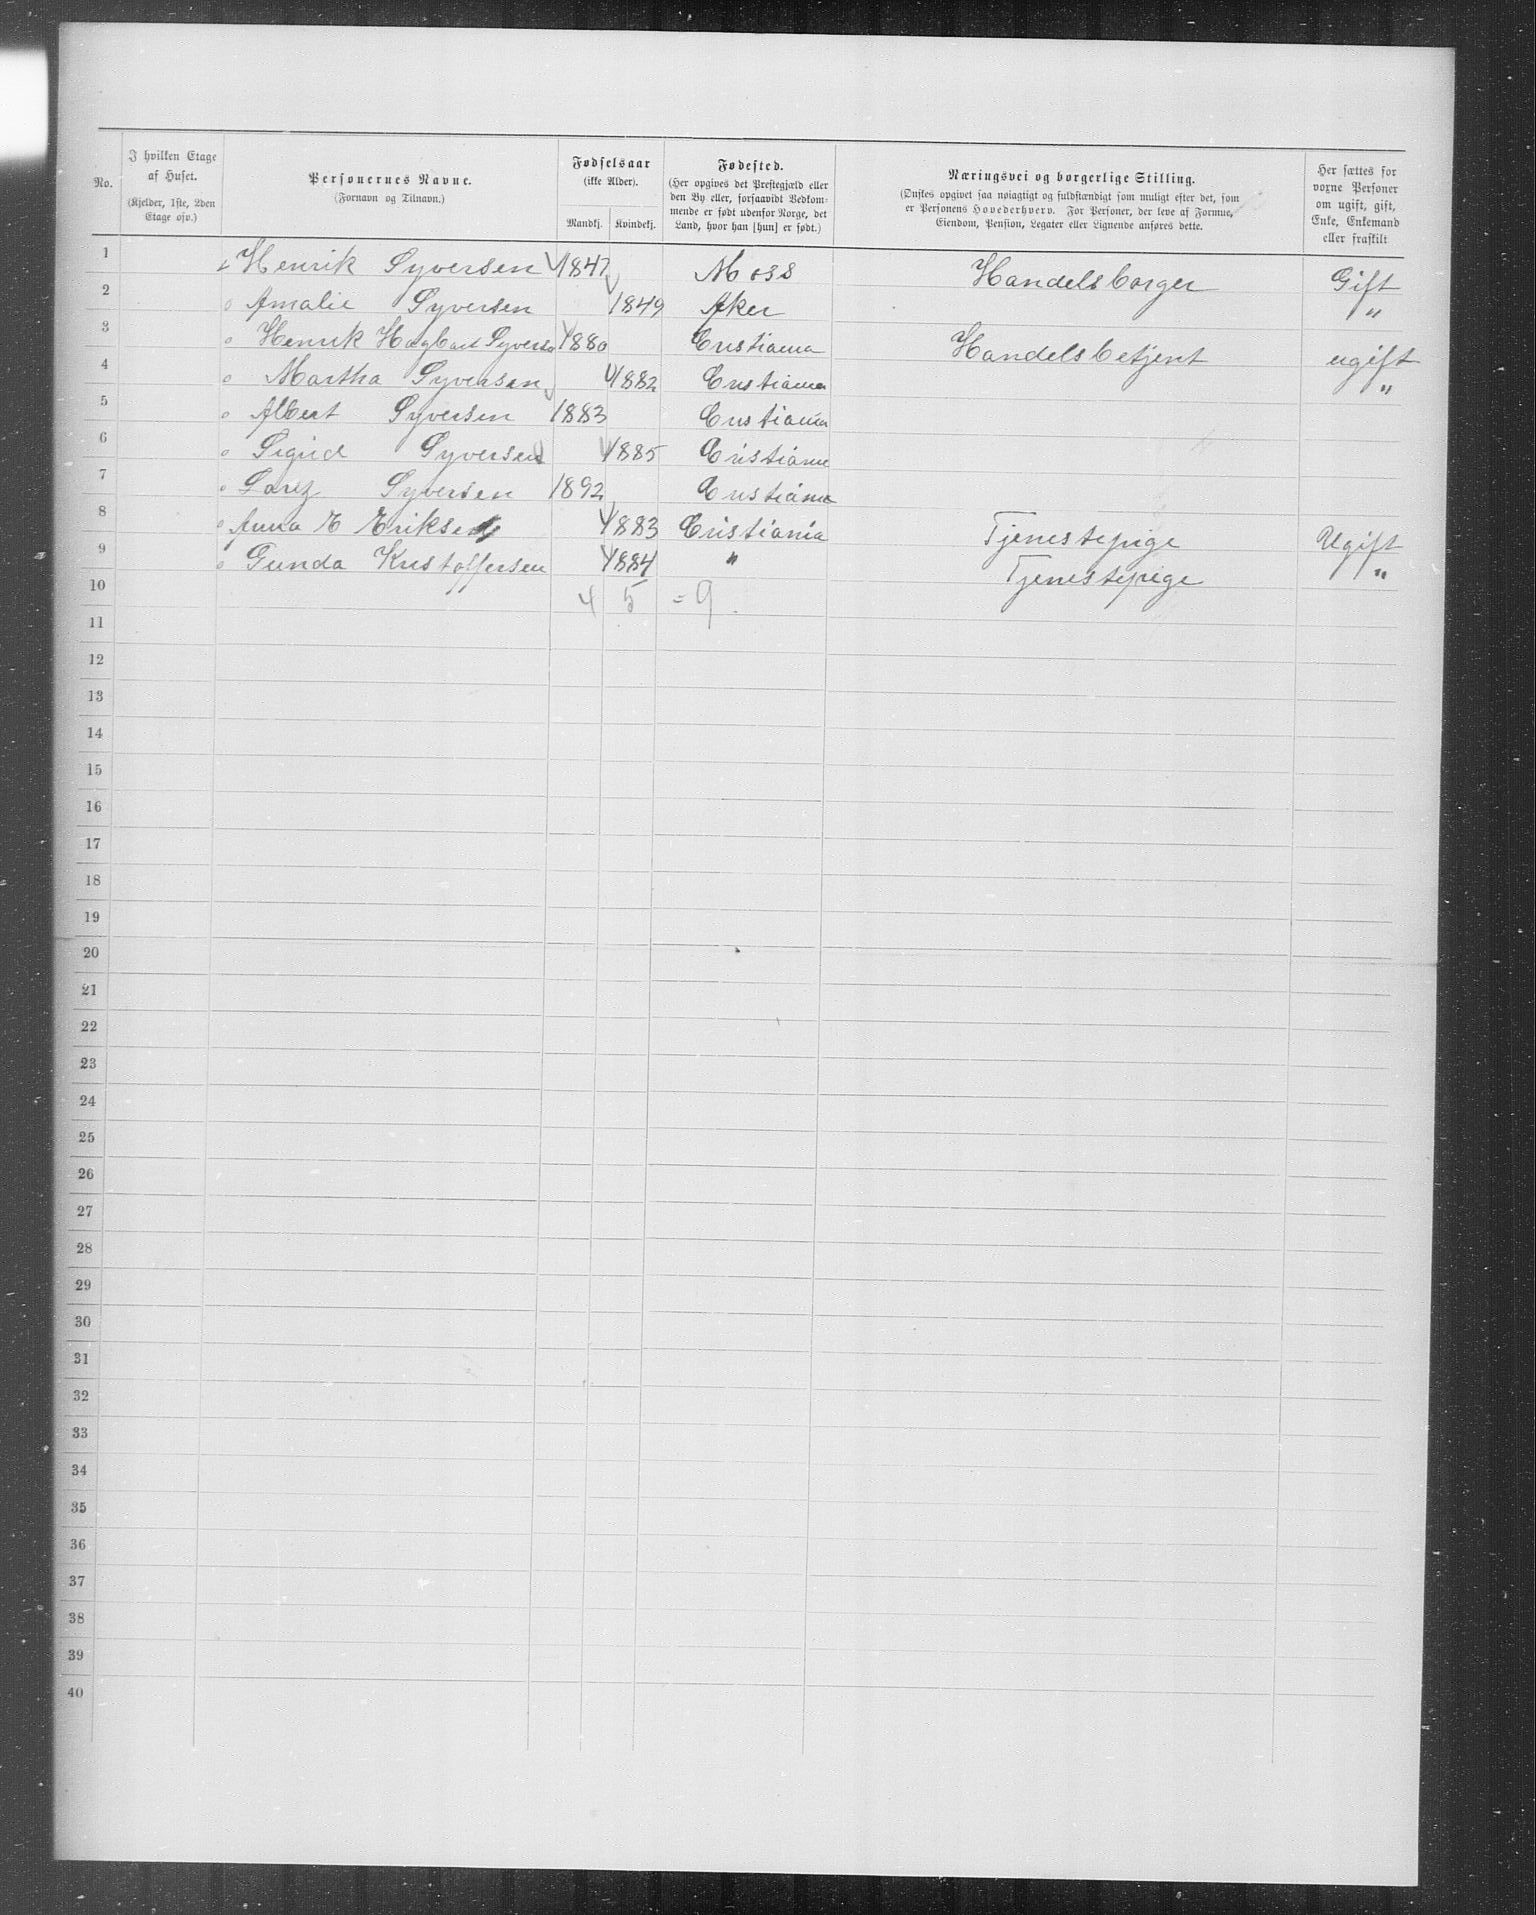 No.
I hvilken Etage af Huset. (Kjelder, 1ste, 2den Etage osv.)
Personernes Navne. (Fornavn og Tilnavn.)
Fødselsaar (ikke Alder). Mandkj. Kvindekj.
Fødested. (Her opgives det Prestegjæld eller den By eller, forsaavidt Vedkommende er født udenfor Norge, det Land, hvor han [hun] er født.)
Næringsvei og borgerlige Stilling. (Ønskes opgivet saa nøiagtigt og fuldstændigt som muligt efter det, som er Personens Hovederhverv. For Personer, der leve af Formue, Eiendom, Pension, Legater eller Lignende anføres dette.)
Her sættes for voxne Personer om ugift, gift, Enke, Enkemand eller fraskilt
1 Henrik Syversen 1847 Moss Handelsborger Gift
2 Amalie Syversen 1849 Aker "
3 Henrik Hagbart Syversen 1880 Cristiania Handelsbetjent ugift
4 Martha Syversen 1882 Cristiania "
5 Albert Syversen 1883 Cristiania
6 Sigrid Syversen 1885 Cristiania
7 Syversen 1892 Cristiania
8 Anna E Eriksen 1883 Cristiania Tjenestepige Ugift
9 Gunda Kristoffersen 1884 " Tjenestepige "
10 4 5 = 9
11
12
13
14
15
16
17
18
19
20
21
22
23
24
25
26
27
28
29
30
31
32
33
34
35
36
37
38
39
40